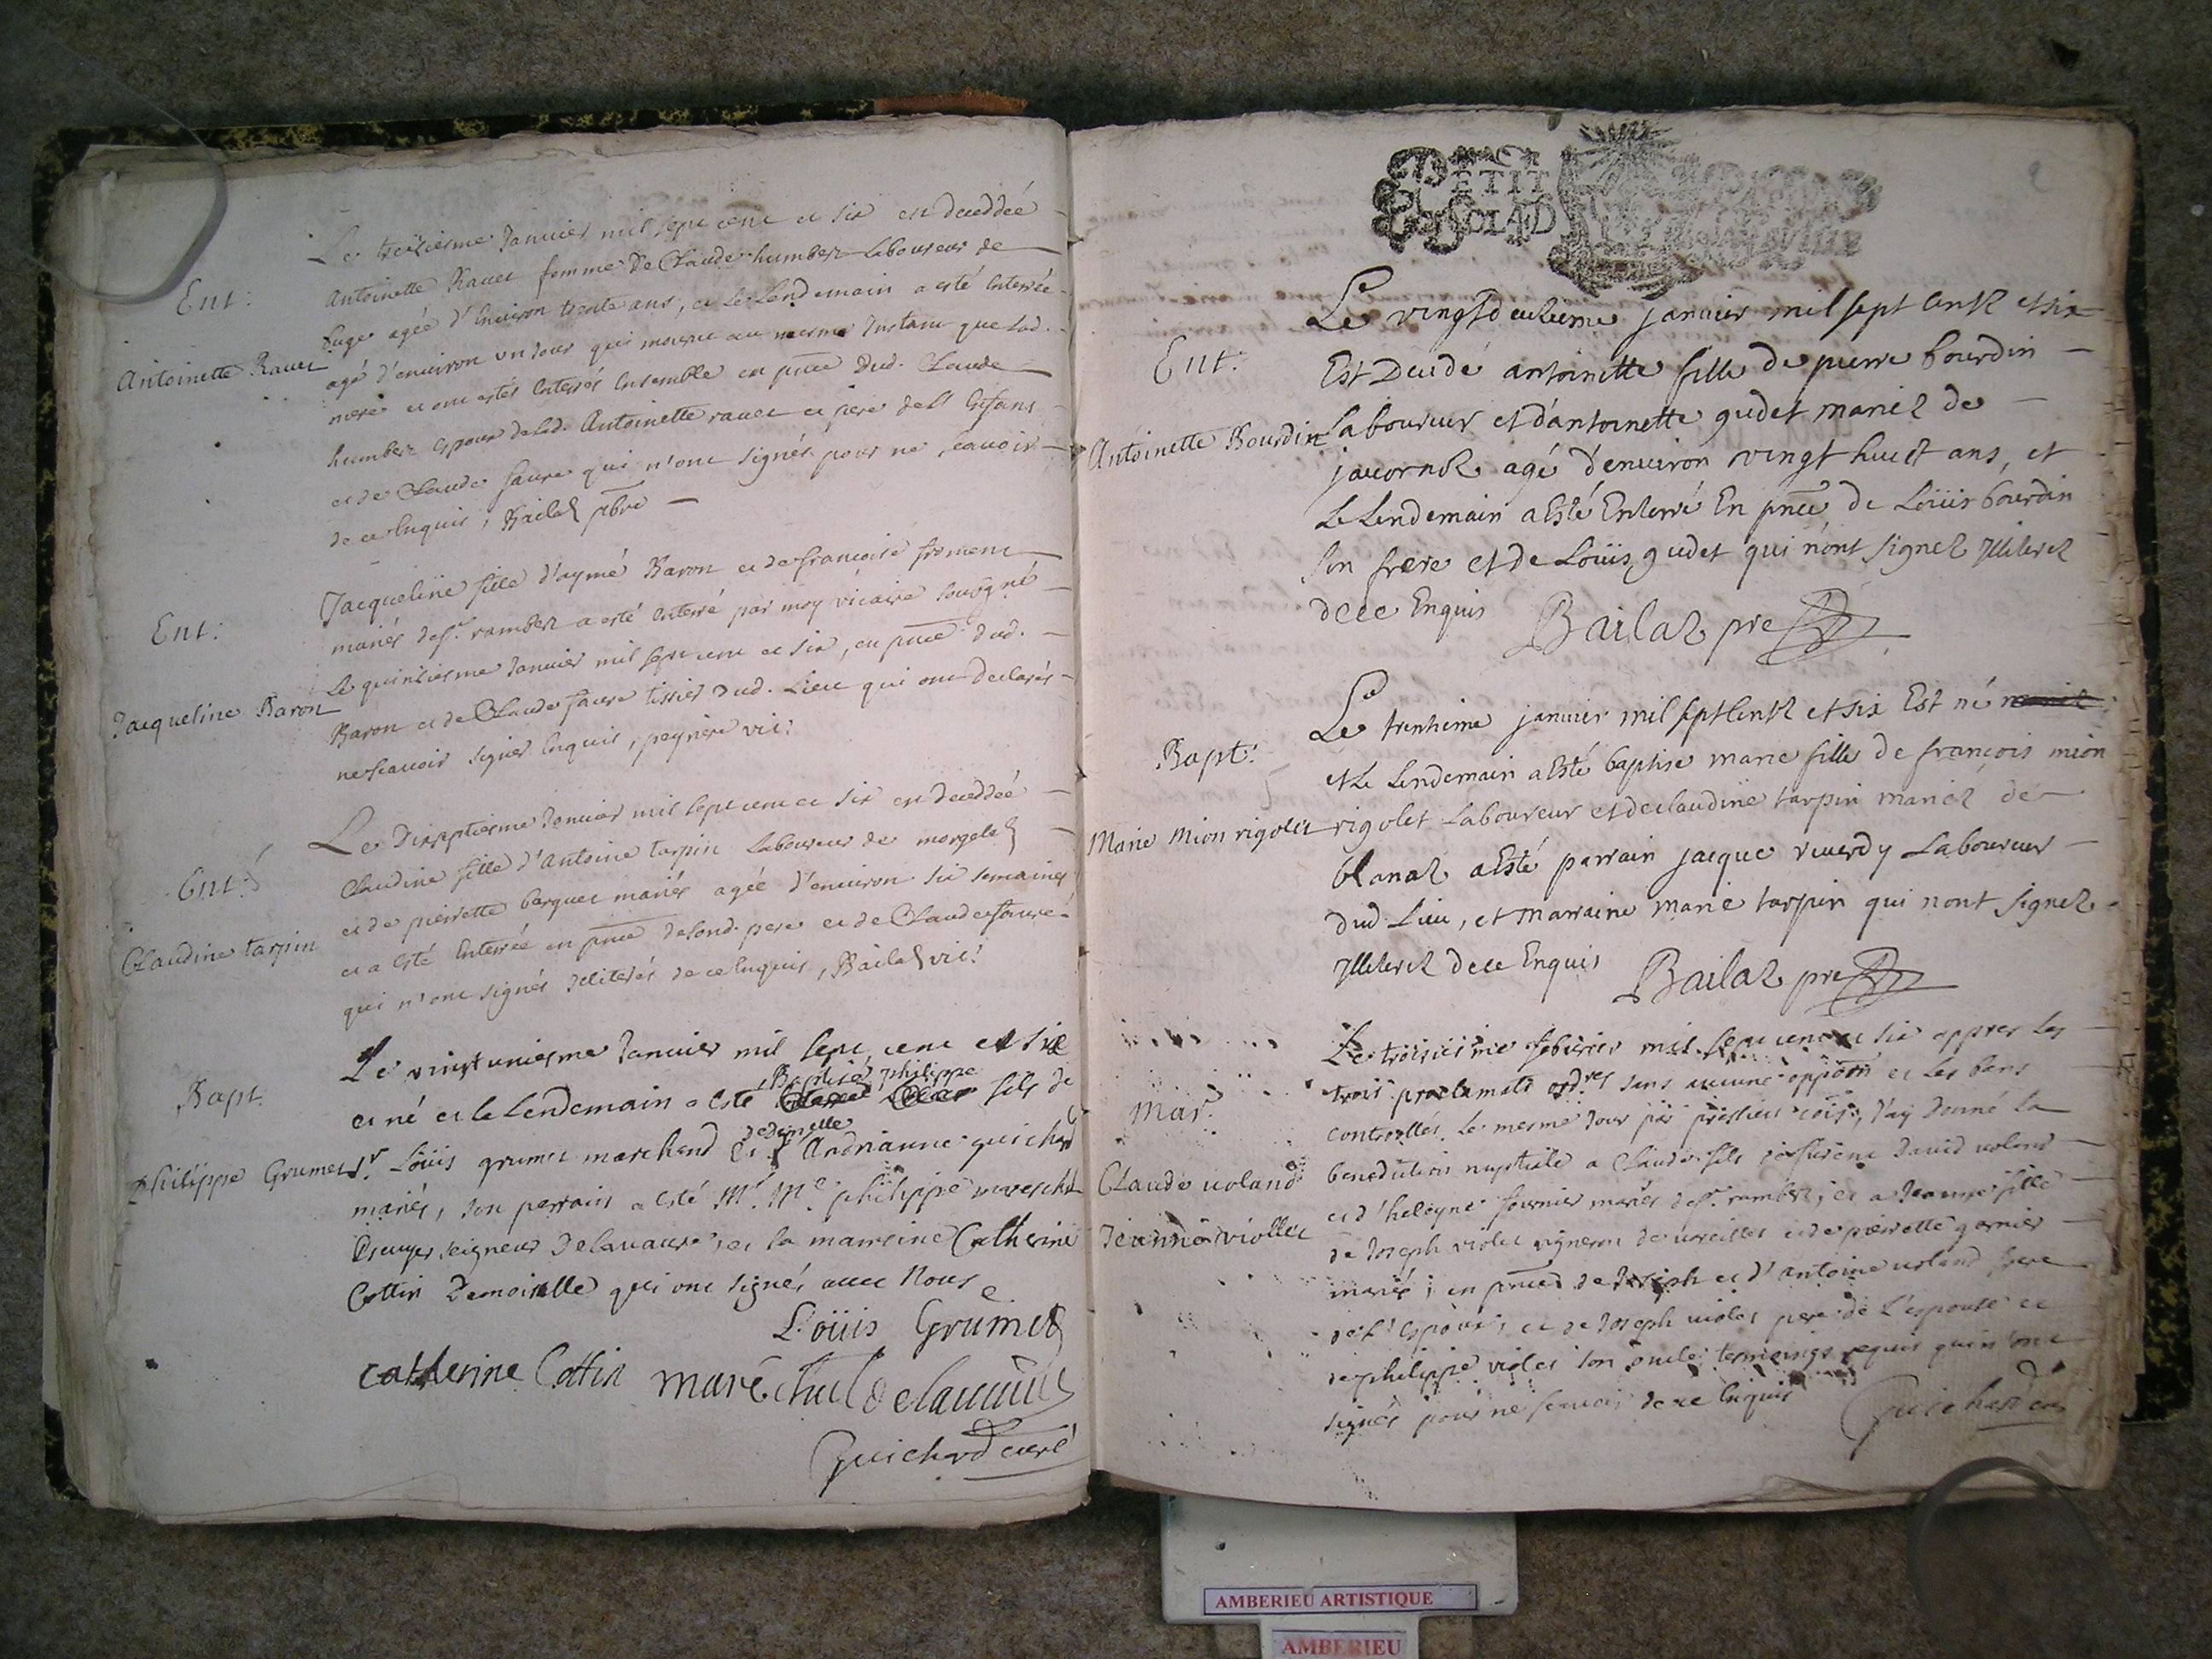 Le treiziesme Janvier mil sept cent et six est deceddée
Ent:
Antoinette Ravet femme de Claude humbert Laboureur de
agée d'Environ trente ans, et Le Lendemain a esté Enterrée
Antoinette Ravet
agé d'environ un Jour qui mourut au mesme Instant que sad.
mere et ont estés Enterrés Ensemble en pnce dud. Claude
humbert Espoux delad. Antoinette ravet et pere dud. Enfant
et de Claude faure qui n'ont signés pour ne scavoir
de ce Enquis, Bailaz pbre
Ent:
Jacqueline fille d'aymé Baron et de francoise froment
mariés de st. rambert a esté Enterré par moy vicaire sousigné
Jacqueline Baron
Le quinziesme Janvier mil sept cent et six, en pnce dud.
Baron et de Claude faure tissier dud. Lieu qui ont declarés
ne scavoir signer Enquis, peyniere vic:
Ent:
Le Dixseptiesme Janvier mil sept cent et six est deceddée
Claudine fille d'Antoine tarpin Laboureur de morgelaz
Claudine tarpin
et de pierrette barquet mariés agée d'environ six semaines
et a Esté Enterrée en pnce desond. pere et de Claude faure
qui n'ont signés Illiterés de ce Enquis, Bailaz vic:
Bapt.
Le vingt uniesme Janvier mil sept cent et six
Baptisé philippe
et né et le Lendemain a esté fils de
dedmelle
Philippe Grumet
Sr. Loüis grumet marchand Et Andrianne guichard
mariés, son parrain a Esté Mr. Me. philippe mareschal
Escuyer seigneur Delavaure, et la marreine Catherine
Cottin Demoiselle qui ont signés avec Nous
Loüis Grumet
catherine Cottin maréchal Delavaure
Guichard curé
2
PETIT
Le vingtdeuxieme janvier mil sept Centz et six
Ent:
Est Decedé antoinette fille de pierre bourdin
Antoinette Bourdin
Laboureur et d'antoinette gudet mariez de
javornoz agé d'environ vingt huict ans, et
Le Lendemain a Esté Enterré En pnce de Loüis bourdin
son frere et de Loüis gudet qui n'ont signez Illiterez
de ce Enquis Bailaz pre
Bapt:
Le trentieme janvier mil sept Centz et six Est né
et Le Lendemain a Esté baptise marie fille de françois mion
Marie Mion rigolet
rigolet Laboureur et de claudine tarpin mariez de
blanaz a Esté parrain jacque reverdy Laboureur
dud Lieu, et marraine marie tarpin qui nont signez
Illiterez de ce Enquis Bailaz pre
Mar.
Le troisiesme febvrier mil sept cent et six appres Les
trois proclamats ordres sans aucune opposon et Les bans
controllés Le mesme Jour par J'ay Donné La
Claude voland
benediction nuptiale a Claude fils de David voland
Jeanne violet
et d'heleyne fournier mariés de st. rambert, et a Jeanne fille
de Joseph violet vigneron de vareilles et de pierrette garnier
mariés; en pnce de Joseph et d'antoine voland frere
de L'Espoux, et de Joseph violet pere de L'espouse et
de philippe violet son oncle tesmoings requis qui n'ont
signés pour ne scavoir de ce Enquis Guichard curé
AMBERIEU ARTISTIQUE
AMBERIEU